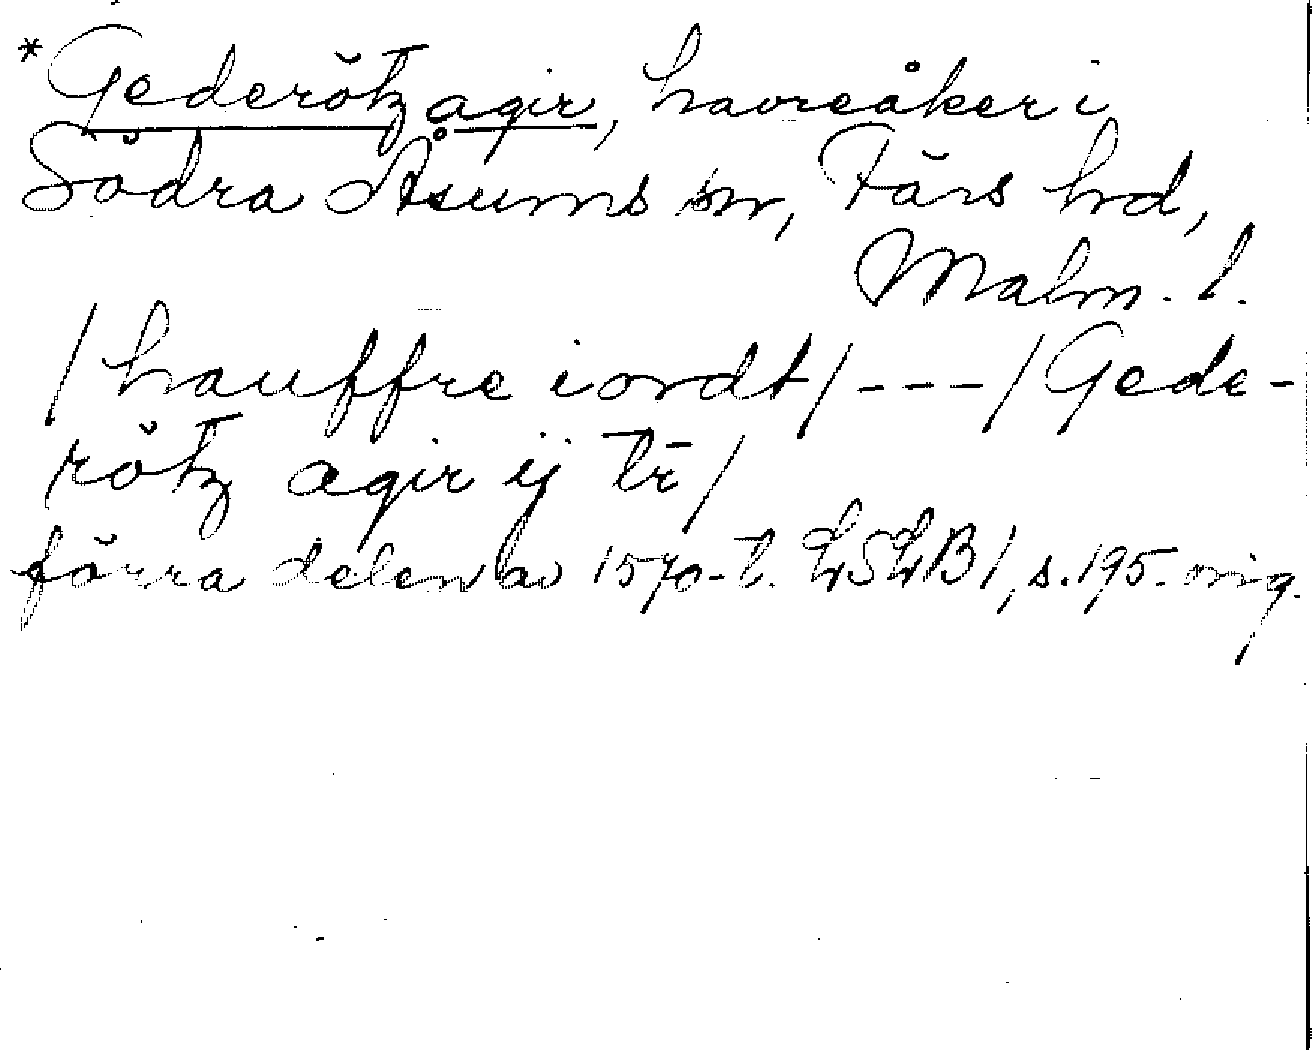 *Gederötz agir, havreåker i
Södra Åsums sn, Färs hd,
Malm. l.
/hauffre iordt/---/Gede-
rötz agir ij tr̄/
förra delen av 1570-t. LSLB 1, s. 195. orig.